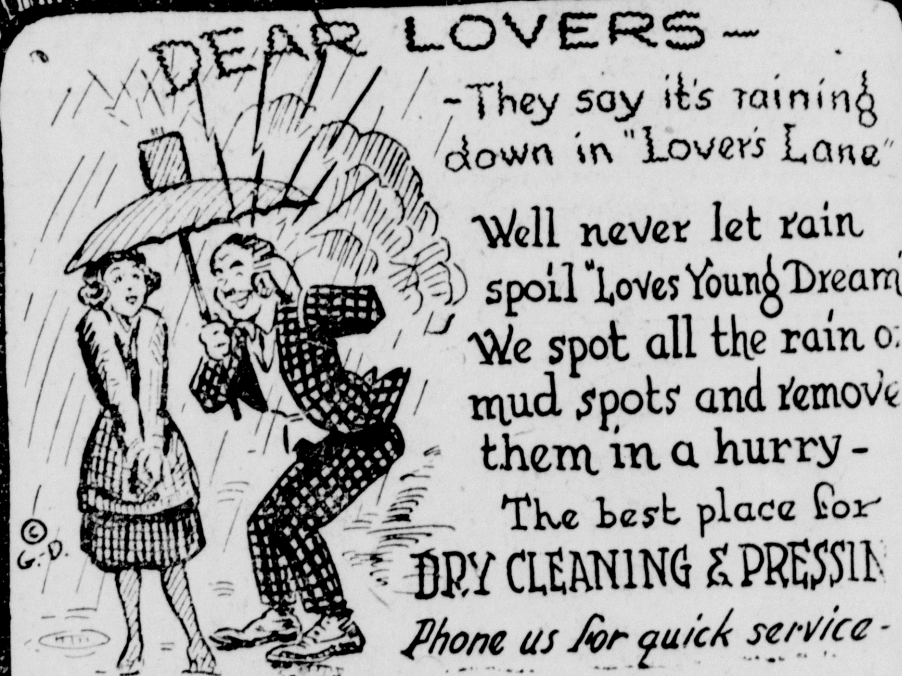 DEAR LOVERS -
- They say it's raining
down in "Lover's Lane"
Well never let rain
spoil "Loves Young Dream
We spot all the rain
mud spots and remove
them in a hurry -
The best place for
DRY CLEANING & PRESSIN
Phone us for quick service -
© G.D.